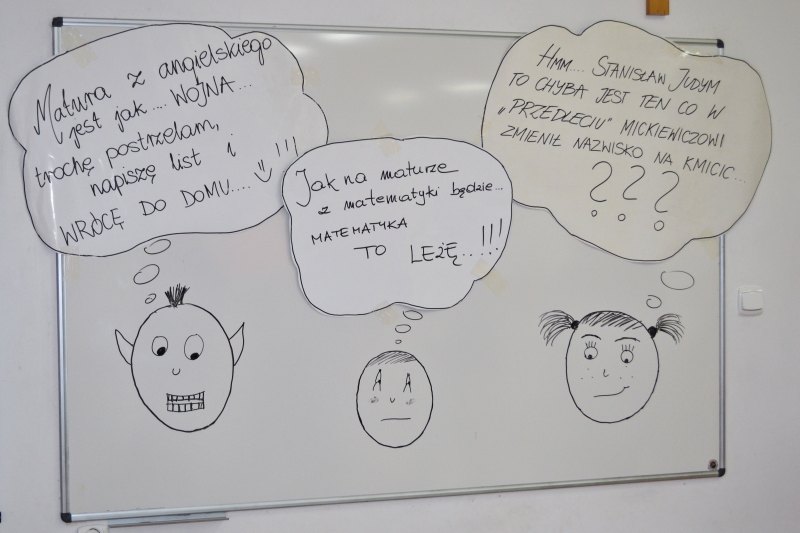 Matura z angielskiego
jest jak.... WOJNA...
trochę postrzelam,
napiszę list i
WRÓCĘ DO DOMU.... !!!
Jak na maturze
z matematyki będzie...
MATEMATYKA
TO LEŻĘ...!!!
HMM.... STANISŁAW JUDYM
TO CHYBA JEST TEN CO W
„PRZEDLECIU" MICKIEWICZOWI
ZMIENIŁ NAZWISKO NA KMICIC...
???